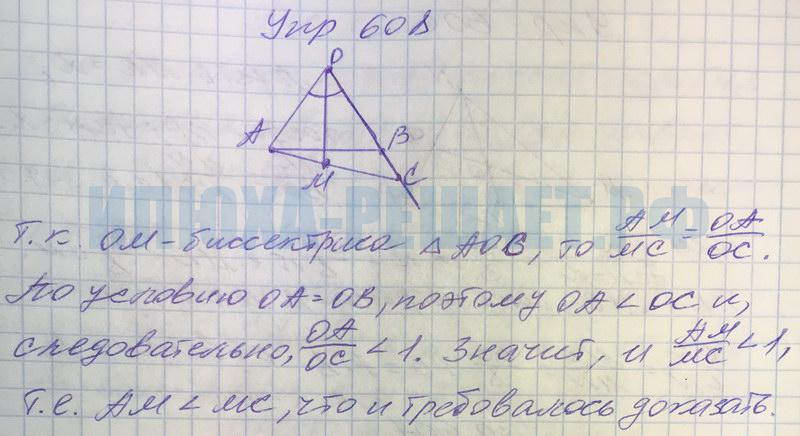 Упр 608
O
A
B
M
C
ИЛЮХА-РЕШАЕТ.РФ
Т.к. OM - биссектриса △ AOC, то AM/MC = OA/OC.
По условию OA = OB, поэтому OA < OC и,
следовательно, OA/OC < 1. Значит, и AM/MC < 1,
т.е. AM < MC, что и требовалось доказать.